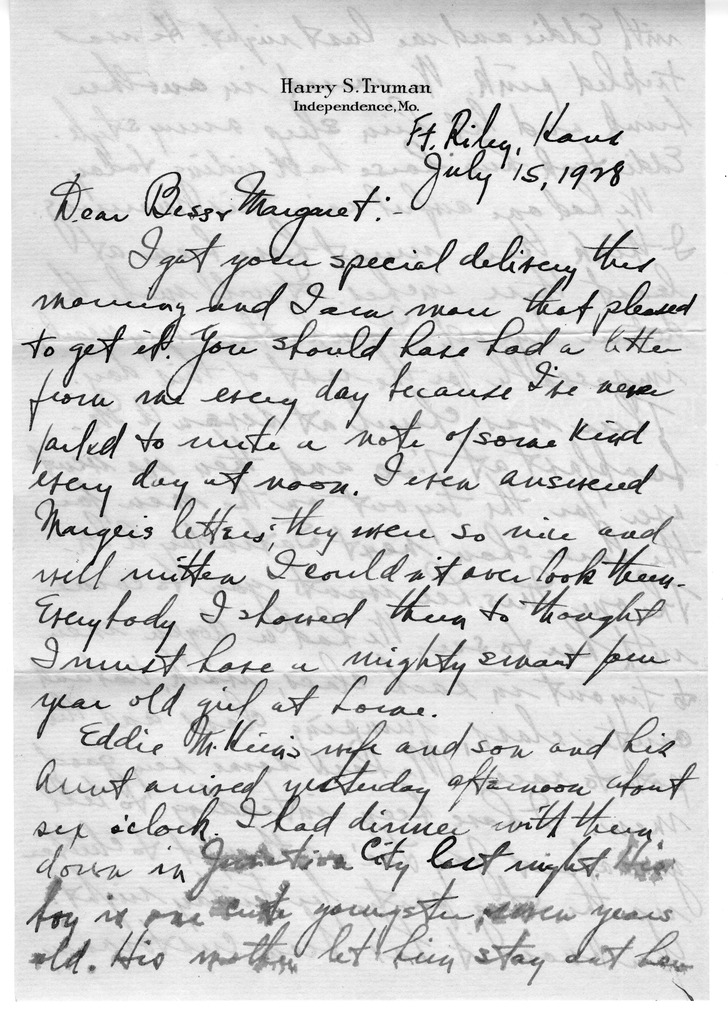 Harry S. Truman
Independence, Mo.
Ft. Riley, Kans
July 15, 1928
Dear Bess & Margaret:-
I got your special delivery this
morning and I am more that pleased
to get it. You should have had a letter
from me every day because I've never
failed to write a note of some kind
every day at noon. I even answered
Margie's letters; they were so nice and
well written I couldn't over look them.
Everybody I showed them to thought
I must have a mighty smart four
year old girl at home.
Eddie McKim's wife and son and his
Aunt arrived yesterday afternoon about
six o'clock. I had dinner with them
down in Junction City last night. His
boy is one cute youngster, seven years
old. His mother let him stay out here